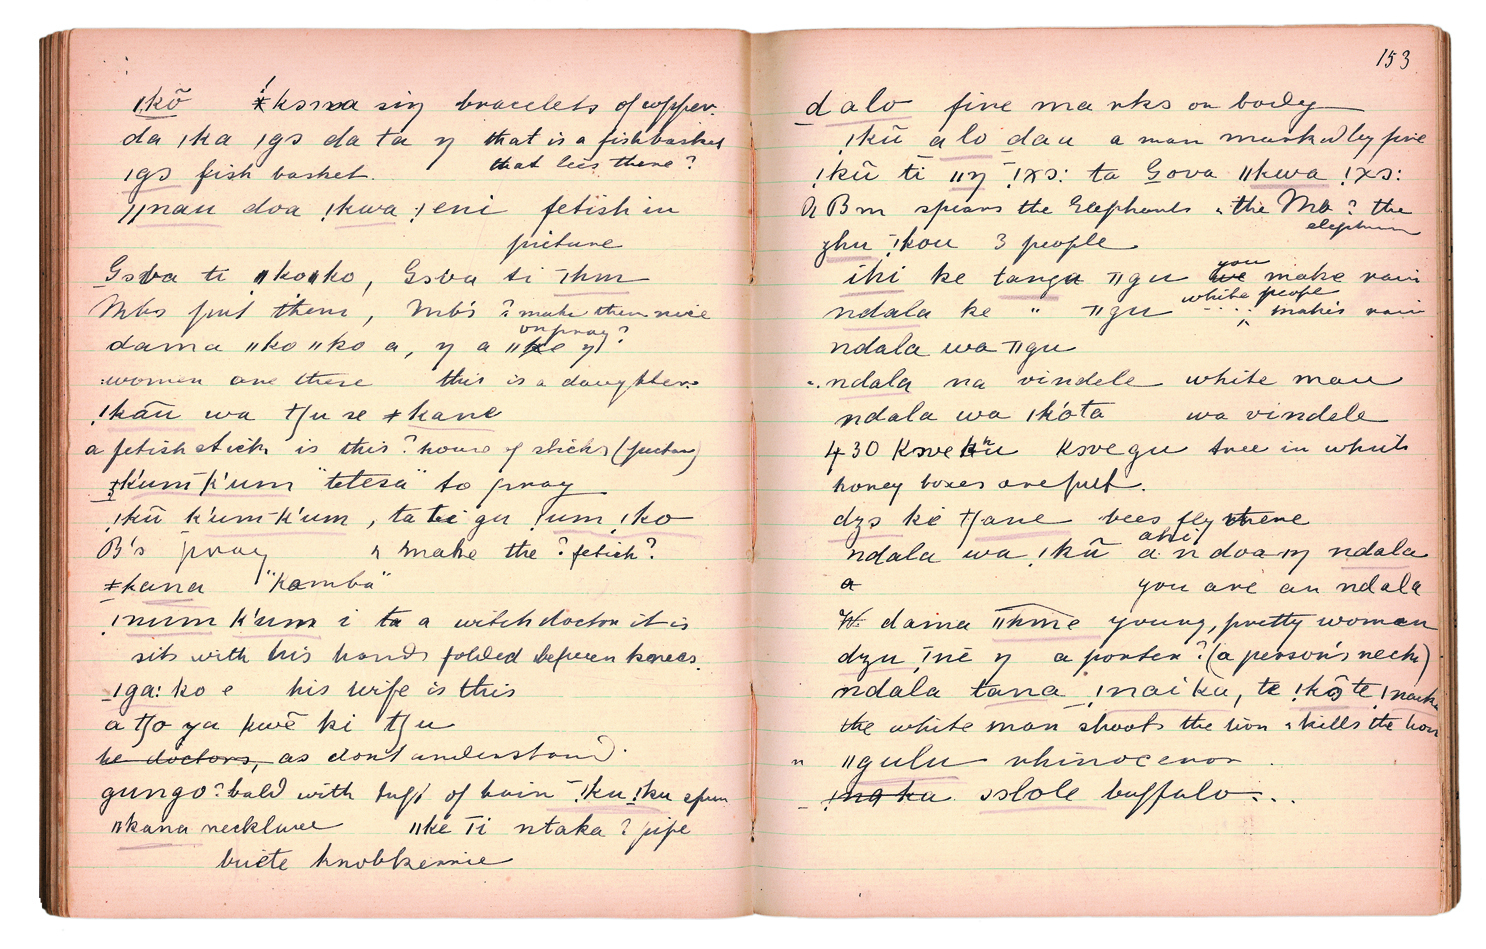 ǃkõ ǂksma siŋ bracelets of copper.
da ıka ıgs da ta ŋ that is a fishbasket
that lies there?
ıgs fish basket.
ǁnau doa ǃkwa ǃeni fetish in
picture
Gsva ti ǁkoǁko, Gsva ti ıhm
Mbs put them, Mbs ? make them nice
or pray?
dama ǁko ǁko a, ŋ a ǁke ŋ
:women are there this is a daughter.
ǃkāu wa tʃu se ǂkane
a fetish stick is this? house of sticks (picture)
ǂkum k'um "tetesa" to pray
ǃkū k'um-k'um, ta tei gu ǃum ǃko
B's pray " make the ? fetish?
ǂkana "Kamba"
ǃnum k'um i ta a witchdoctor it is
sits with his hands folded between knees.
ıga: ko e his wife is this
a tʃo ya kwē ki tʃu
he doctors, as dont understand.
gungo? bald with tuft of hair ǃku ǃku spoon
ǁkana necklace ǁke ti ntaka ? pipe
buete knobkerrie
153
dalo fire marks on body
ǃkū a lo dau a man marked by fire
ǃkū ti ǁŋ ǃxs: ta Gova ǁkwa ǃxs:
A Bm spears the Elephants " the Mb ? the
elephant
zhu ǃkou 3 people
you
ihi ke tanga ǁgu we make rain
white people
ndala ke " ǁgu .... makes rain
ndala wa ǁgu
". ndala na vindele white man
ndala wa ıkota wa vindele
430 Ksvekhu Ksvegu tree in which
honey boxes are put.
dzs ke tʃane bees fly there
ahi
ndala wa ǃkū a n doa ŋ ndala
a you are an ndala
dama ǁhme young, pretty woman
dzu ǃnē ŋ a porter? (a person's neck)
ndala tana ǃnaika, te ǃkõ te ǃnaika
the white man shoots the lion & kills the lion
" ǁgulu rhinoceros.
ǃnaka sslole buffalo...